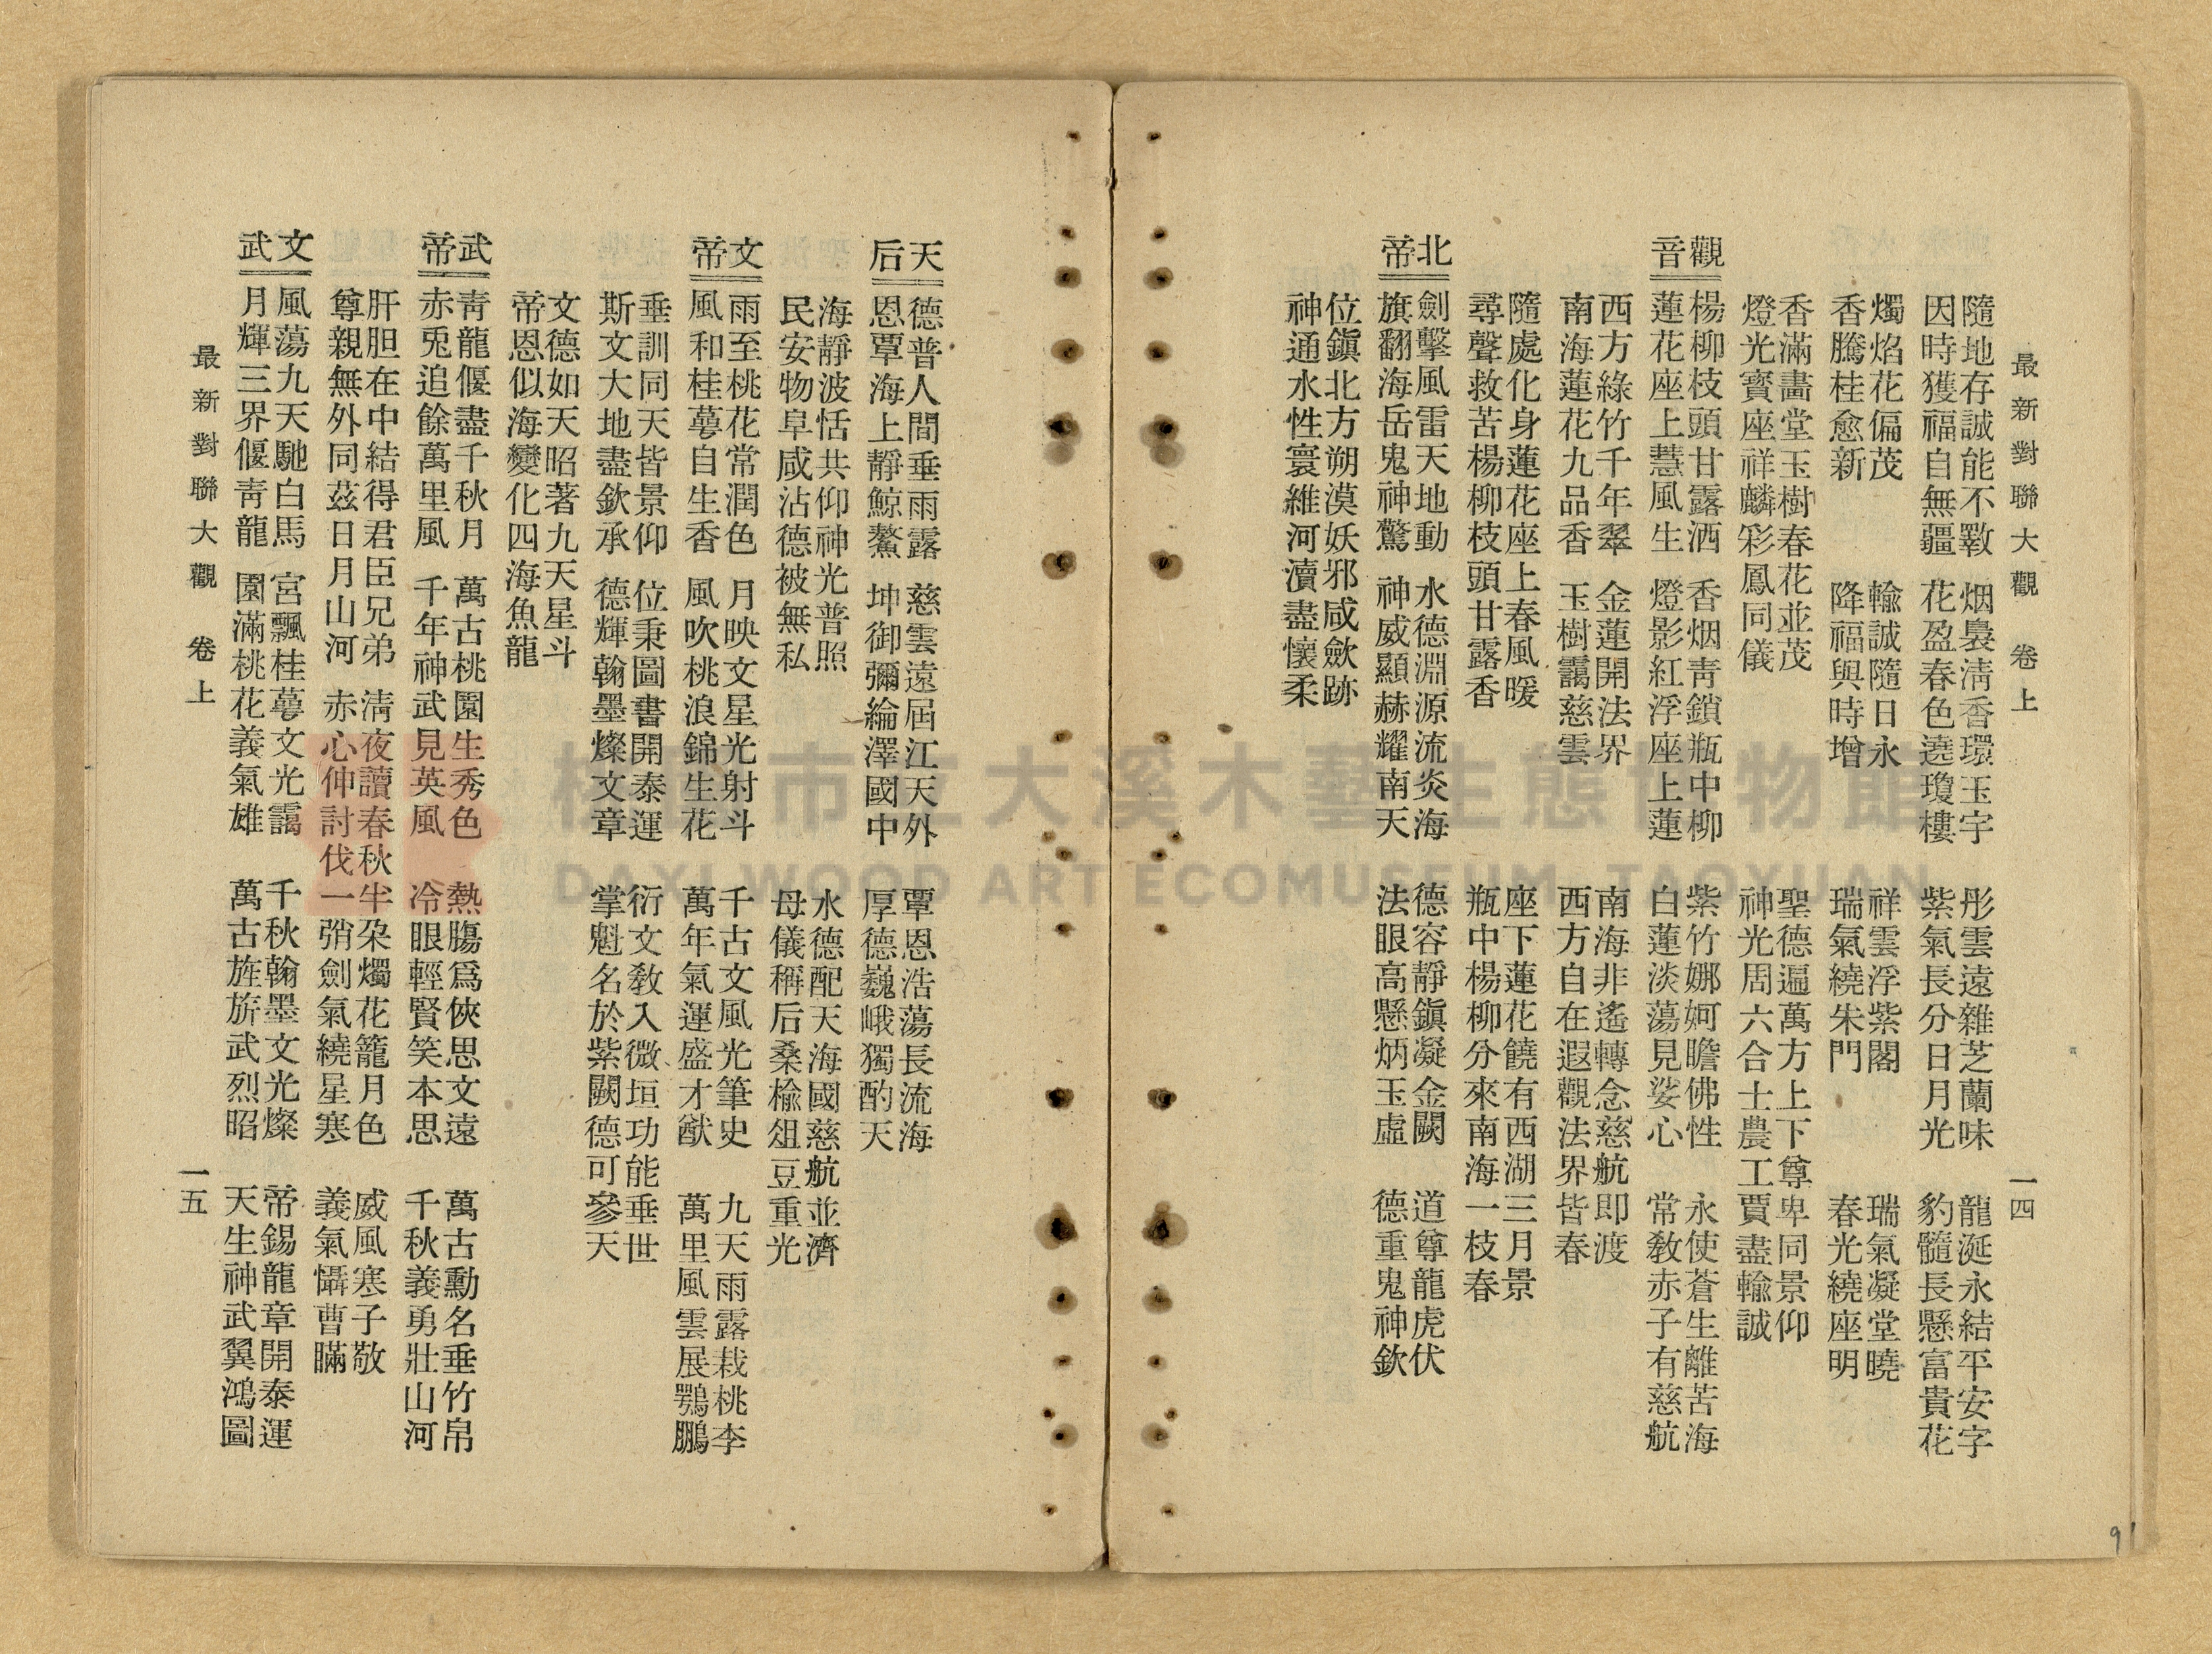 最新對聯大觀　卷上　一四
隨地存誠能不斁　烟裊淸香環玉宇　彤雲遠雜芝蘭味　龍涎永結平安字
因時獲福自無疆　花盈春色遶瓊樓　紫氣長分日月光　豹髓長懸富貴花
燭焰花偏茂　輸誠隨日永　祥雲浮紫閣　瑞氣凝堂曉
香騰桂愈新　降福與時增　瑞氣繞朱門　春光繞座明
香滿畵堂玉樹春花並茂　聖德遍萬方上下尊卑同景仰
燈光寳座祥麟彩鳳同儀　神光周六合士農工賈盡輸誠
觀音
楊柳枝頭甘露洒　香烟靑鎖瓶中柳　紫竹娜妸瞻佛性　永使蒼生離苦海
蓮花座上慧風生　燈影紅浮座上蓮　白蓮淡蕩見娑心　常敎赤子有慈航
西方綠竹千年翠　金蓮開法界　南海非遙轉念慈航即渡
南海蓮花九品香　玉樹靄慈雲　西方自在遐觀法界皆春
隨處化身蓮花座上春風暖　座下蓮花饒有西湖三月景
尋聲救苦楊柳枝頭甘露香　瓶中楊柳分來南海一枝春
北帝
劍擊風雷天地動　水德淵源流炎海　德容靜鎭凝金闕　道尊龍虎伏
旗翻海岳鬼神驚　神威顯赫耀南天　法眼高懸炳玉虛　德重鬼神欽
位鎭北方朔漠妖邪咸歛跡
神通水性寰維河瀆盡懷柔
天后
德普人間垂雨露　慈雲遠屆江天外　覃恩浩蕩長流海
恩覃海上靜鯨鰲　坤御彌綸澤國中　厚德巍峨獨酌天
海靜波恬共仰神光普照　水德配天海國慈航並濟
民安物阜咸沾德被無私　母儀稱后桑楡俎豆重光
文帝
雨至桃花常潤色　月映文星光射斗　千古文風光筆史　九天雨露栽桃李
風和桂萼自生香　風吹桃浪錦生花　萬年氣運盛才猷　萬里風雲展鶚鵬
垂訓同天皆景仰　位秉圖書開泰運　衍文敎入微垣功能垂世
斯文大地盡欽承　德輝翰墨燦文章　掌魁名於紫闕德可參天
文德如天昭著九天星斗
帝恩似海變化四海魚龍
武帝
靑龍偃盡千秋月　萬古桃園生秀色　熱膓爲俠思文遠　萬古勳名垂竹帛
赤兎追餘萬里風　千年神武見英風　冷眼輕賢笑本思　千秋義勇壯山河
肝胆在中結得君臣兄弟　淸夜讀春秋半朶燭花籠月色　威風寒子敬
尊親無外同茲日月山河　赤心仲討伐一弰劍氣繞星寒　義氣懾曹瞞
文武
風蕩九天馳白馬　宮飄桂萼文光靄　千秋翰墨文光燦　帝錫龍章開泰運
月輝三界偃靑龍　園滿桃花義氣雄　萬古旌旂武烈昭　天生神武翼鴻圖
最新對聯大觀　卷上　一五
91
桃　市　大溪木藝生態博物館
DAXI WOOD ART ECOMUSEUM, TAOYUAN